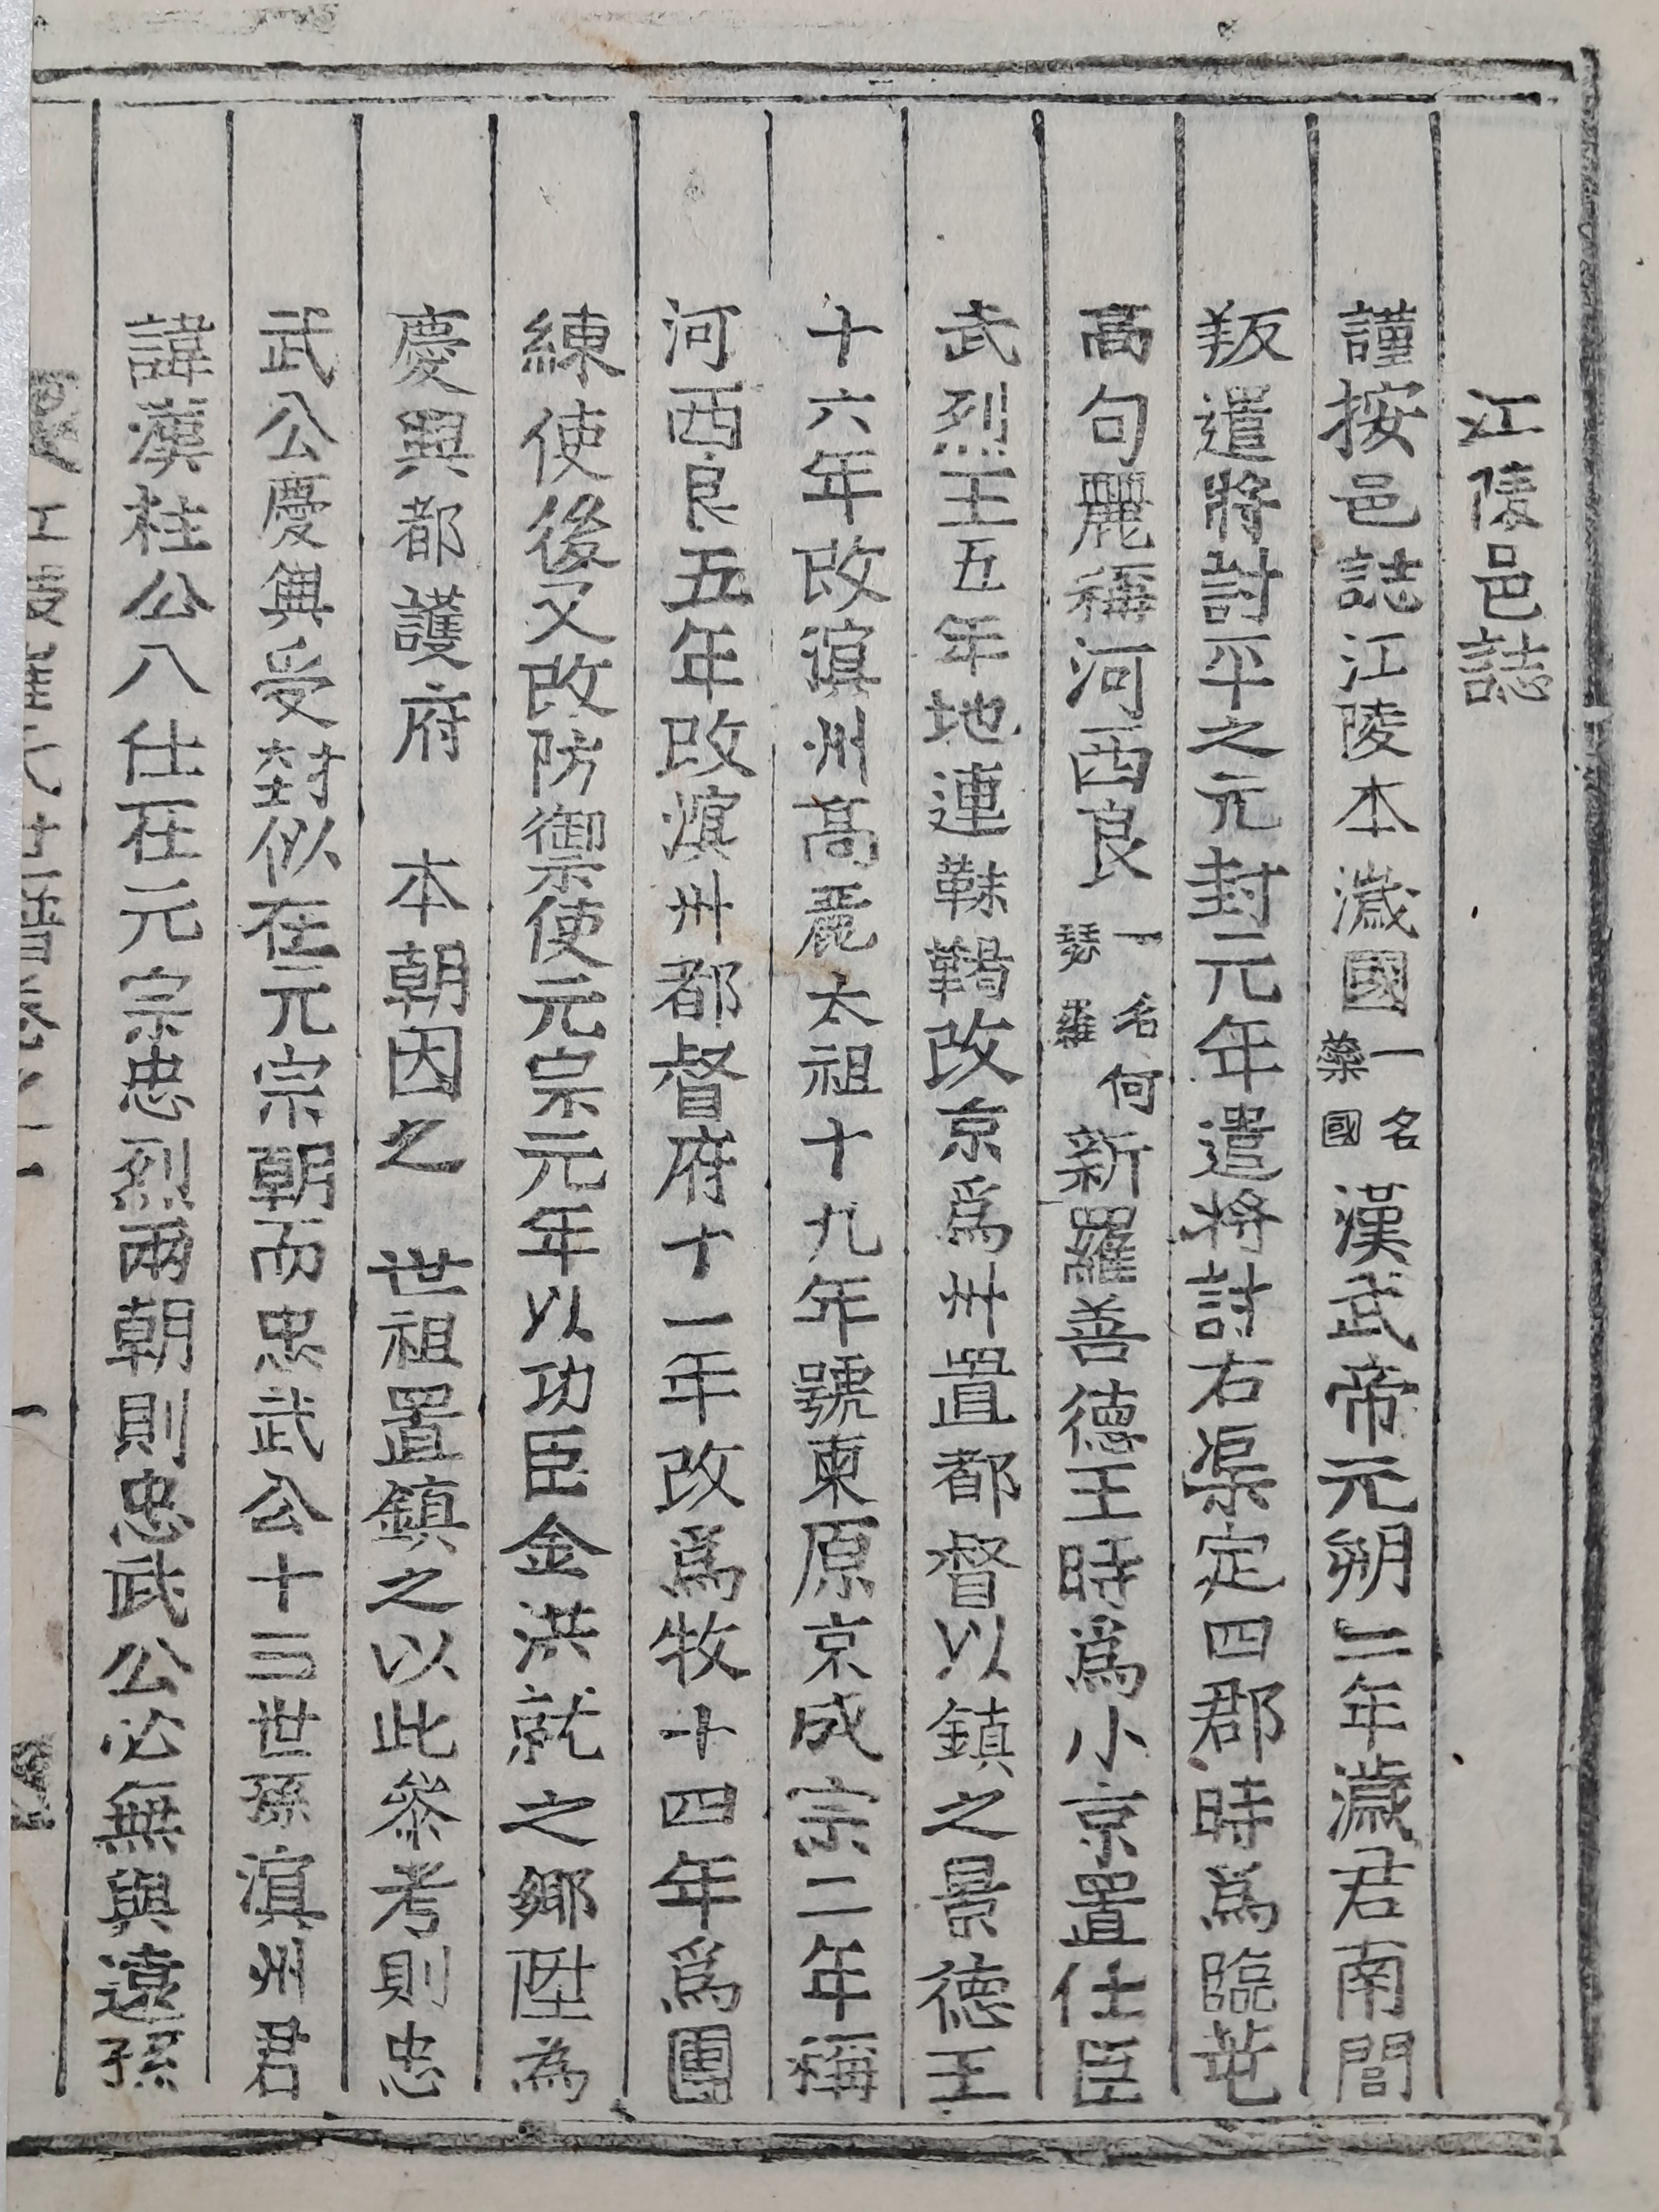 江陵邑誌
謹按邑誌江陵本濊國一名蘂國漢武帝元朔二年濊君南閭
叛遣將討平之元封元年遣將討右渠定四郡時爲臨芚
高句麗稱河西良一名何瑟羅新羅善德王時爲小京置仕臣
武烈王五年地連靺鞨改京爲州置都督以鎮之景德王
十六年改溟州高麗太祖十九年號東原京成宗二年稱
河西良五年改溟州都督府十一年改爲牧十四年爲團
練使後又改防禦使元宗元年以功臣金洪就之鄉陞為
慶興都護府 本朝因之 世祖置鎮之以此叅考則忠
武公慶興受封似在元宗朝而忠武公十三世孫溟州君
諱漢柱公八仕在元宗忠烈兩朝則忠武公必無與遠孫